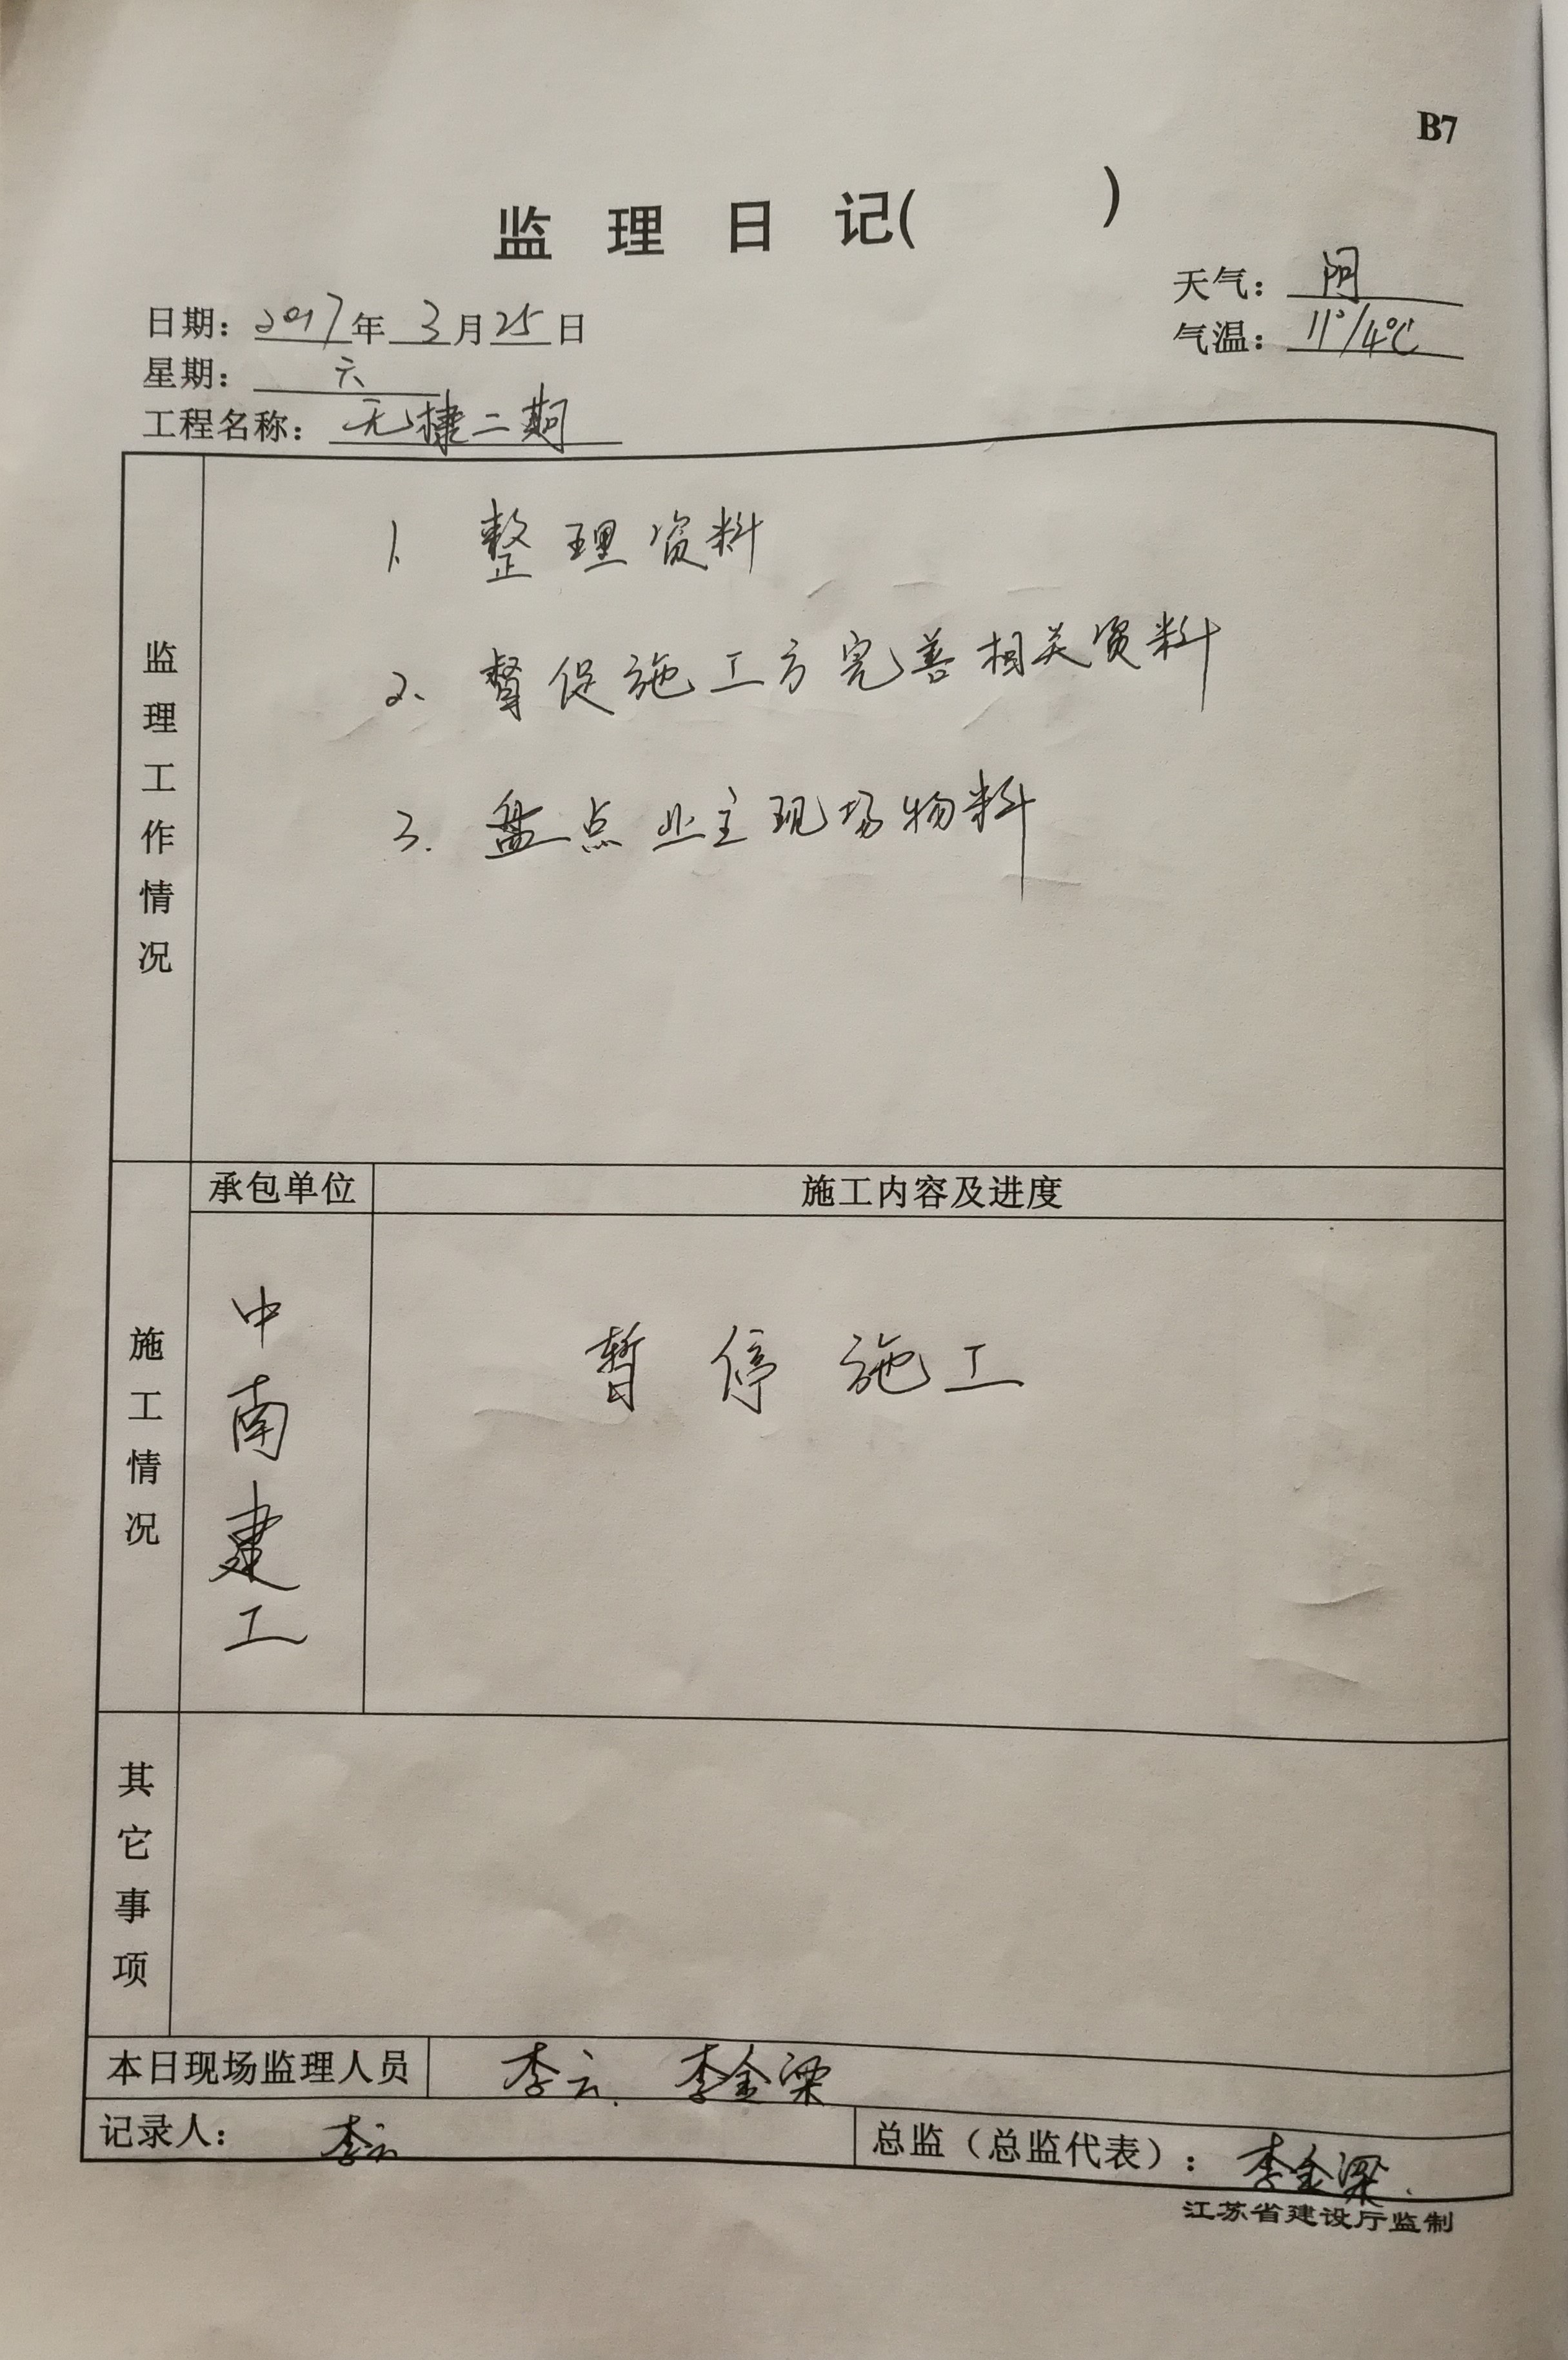 B7
监理日记(　　)
天气：阴
日期：2017年3月25日
气温：11°/4℃
星期：六
工程名称：无捷二期
监理工作情况
1. 整理资料
2. 督促施工方完善相关资料
3. 盘点业主现场物料
施工情况
承包单位
施工内容及进度
中南建工
暂停施工
其它事项
本日现场监理人员 李云、李金梁
记录人：李云
总监（总监代表）：李金梁
江苏省建设厅监制